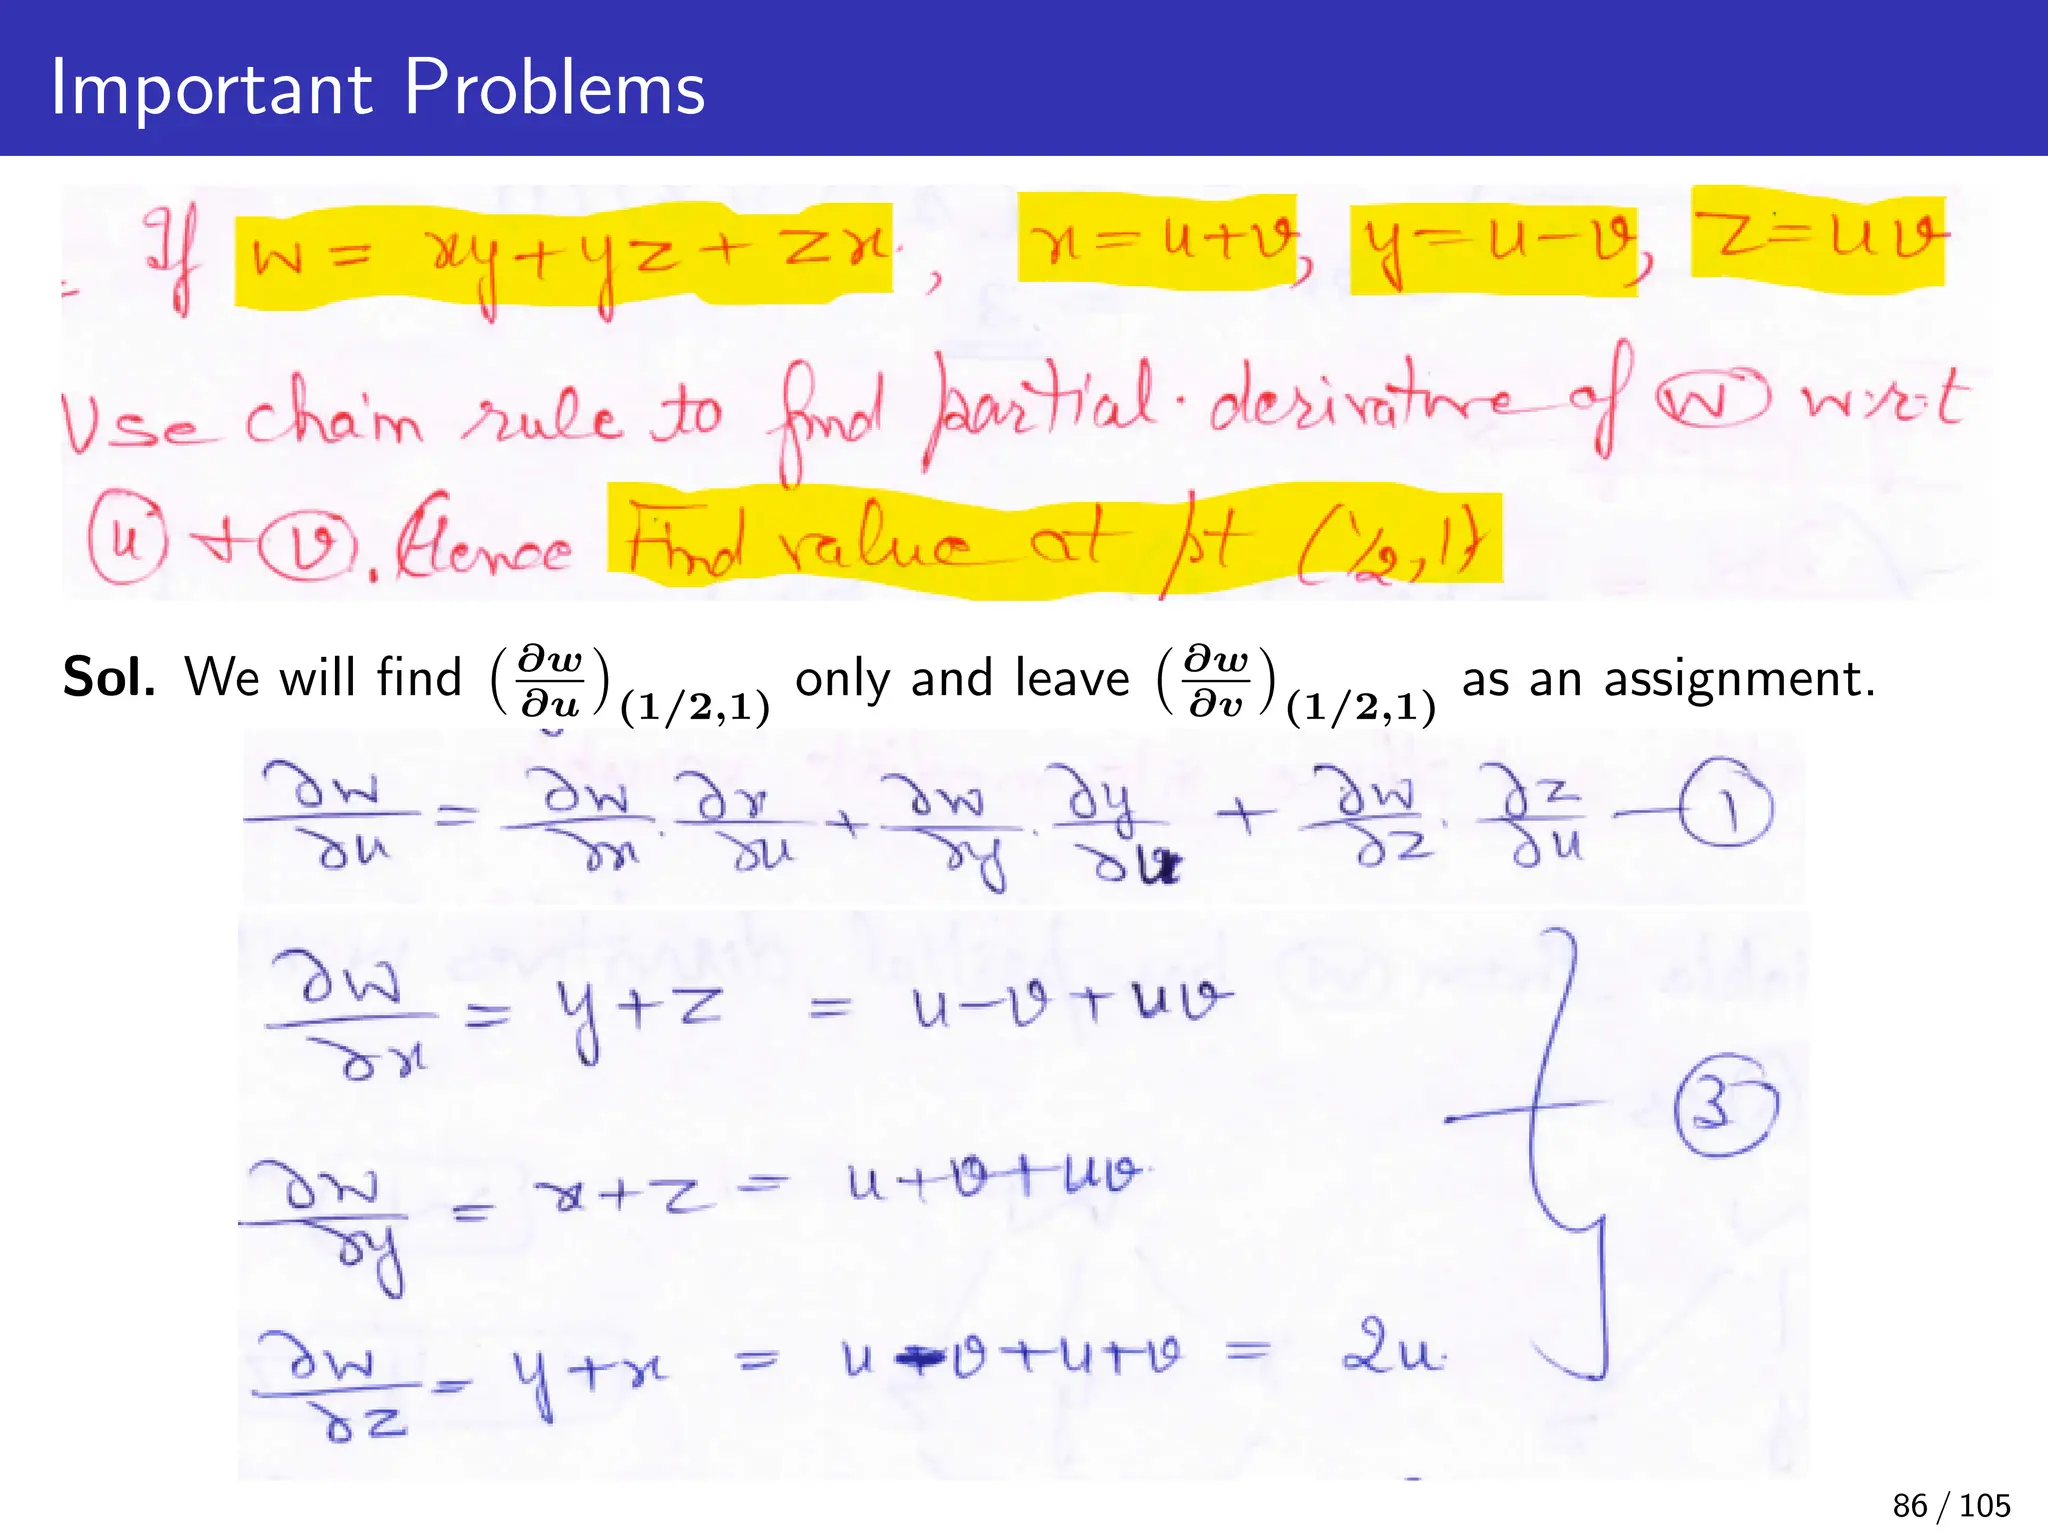 Important Problems
- If w = xy+yz+zx, x=u+v, y=u-v, z=uv
Use chain rule to find partial derivative of w w.r.t
u + v. Hence Find value at pt (1/2,1)
Sol. We will find (∂w/∂u)(1/2,1) only and leave (∂w/∂v)(1/2,1) as an assignment.
∂w/∂u = ∂w/∂x · ∂x/∂u + ∂w/∂y · ∂y/∂u + ∂w/∂z · ∂z/∂u — 1
∂w/∂x = y+z = u-v+uv
∂w/∂y = x+z = u+v+uv
3
∂w/∂z = y+x = u-v+u+v = 2u
86 / 105